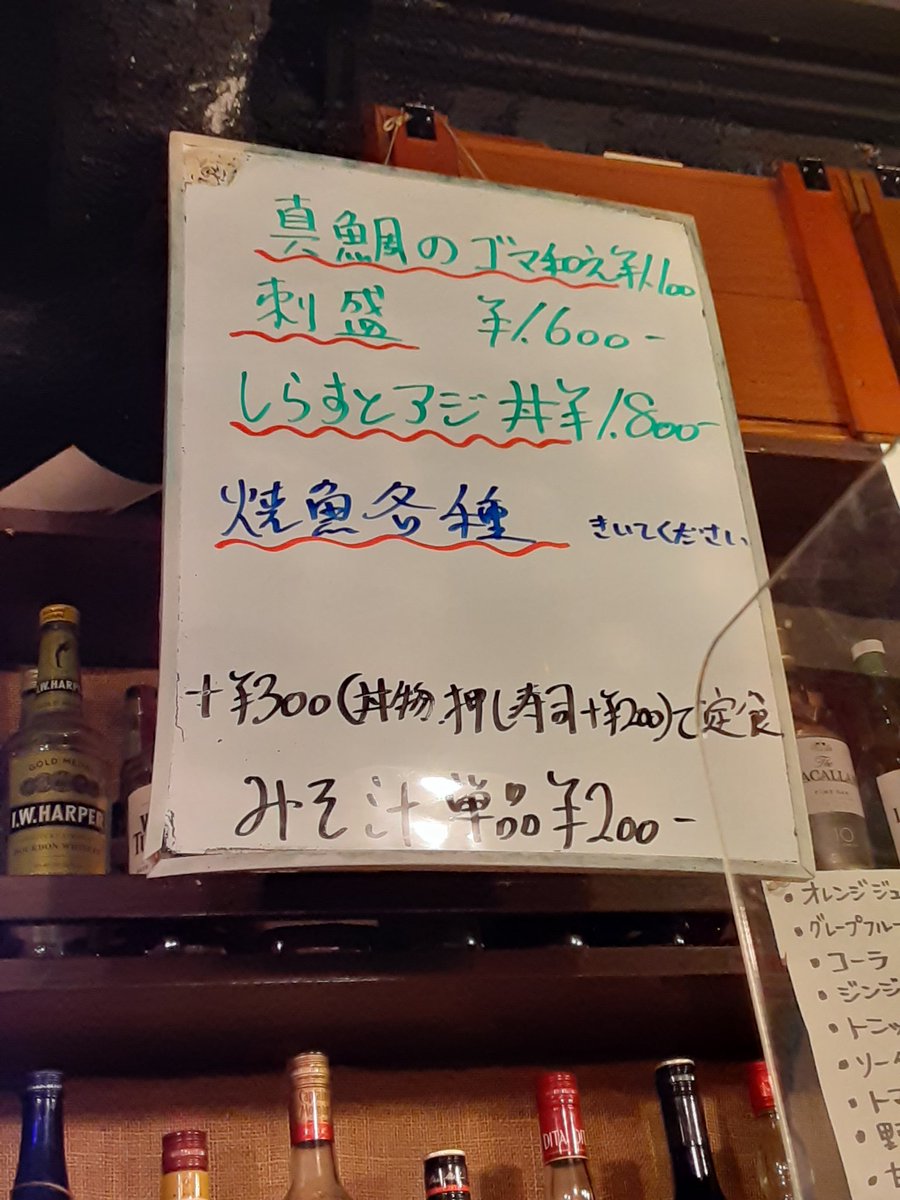 真鯛のゴマ和え¥1.100
刺盛 ¥1.600-
しらすとアジ丼¥1.800-
焼魚各種 きいてください
+¥300(丼物.押し寿司+¥200)で定食
みそ汁単品¥200-
I.W.HARP
GOLD MEDAL
I.W.HARPER
BOURBON WHISKEY
The
MACALLAN
10
・オレンジジュ
・グレープフルー
・コーラ
・ジンジ
・トニッ
・ソーダ
・トマ
・野
DITA